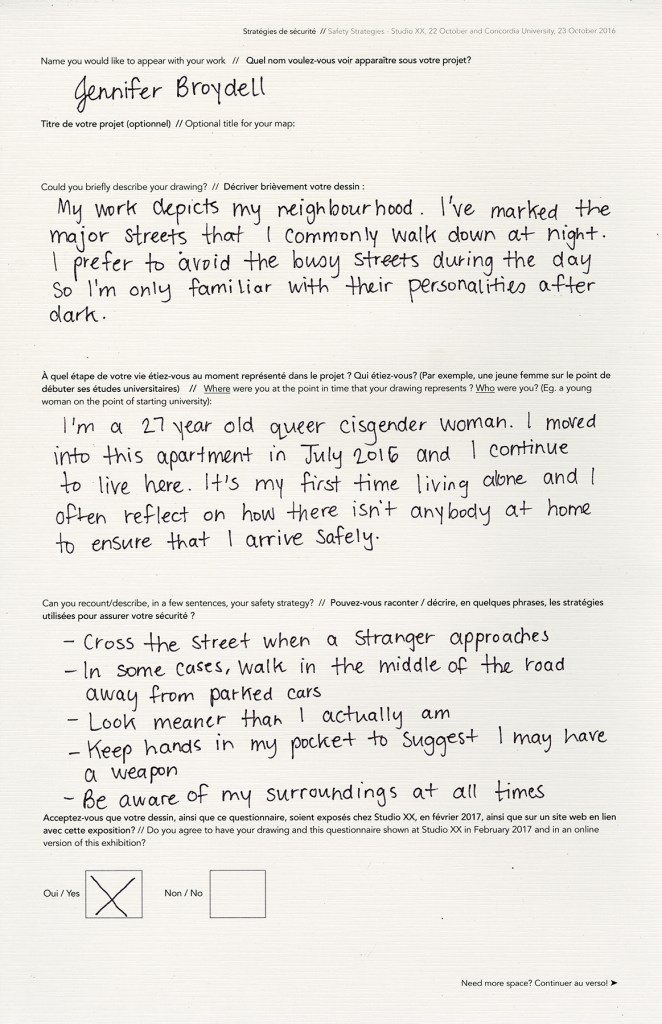 Stratégies de sécurité // Safety Strategies - Studio XX, 22 October and Concordia University, 23 October 2016
Name you would like to appear with your work // Quel nom voulez-vous voir apparaître sous votre projet?
Jennifer Broydell
Titre de votre projet (optionnel) // Optional title for your map:
Could you briefly describe your drawing? // Décriver brièvement votre dessin :
My work depicts my neighbourhood. I've marked the
major streets that I commonly walk down at night.
I prefer to avoid the busy streets during the day
so I'm only familiar with their personalities after
dark.
À quel étape de votre vie étiez-vous au moment représenté dans le projet ? Qui étiez-vous? (Par exemple, une jeune femme sur le point de
débuter ses études universitaires) // Where were you at the point in time that your drawing represents ? Who were you? (Eg. a young
woman on the point of starting university):
I'm a 27 year old queer cisgender woman. I moved
into this apartment in July 2016 and I continue
to live here. It's my first time living alone and I
often reflect on how there isn't anybody at home
to ensure that I arrive safely.
Can you recount/describe, in a few sentences, your safety strategy? // Pouvez-vous raconter / décrire, en quelques phrases, les stratégies
utilisées pour assurer votre sécurité ?
- Cross the street when a stranger approaches
- In some cases, walk in the middle of the road
away from parked cars
- Look meaner than I actually am
- Keep hands in my pocket to suggest I may have
a weapon
- Be aware of my surroundings at all times
Acceptez-vous que votre dessin, ainsi que ce questionnaire, soient exposés chez Studio XX, en février 2017, ainsi que sur un site web en lien
avec cette exposition? // Do you agree to have your drawing and this questionnaire shown at Studio XX in February 2017 and in an online
version of this exhibition?
Oui / Yes X Non / No
Need more space? Continuer au verso! ➤